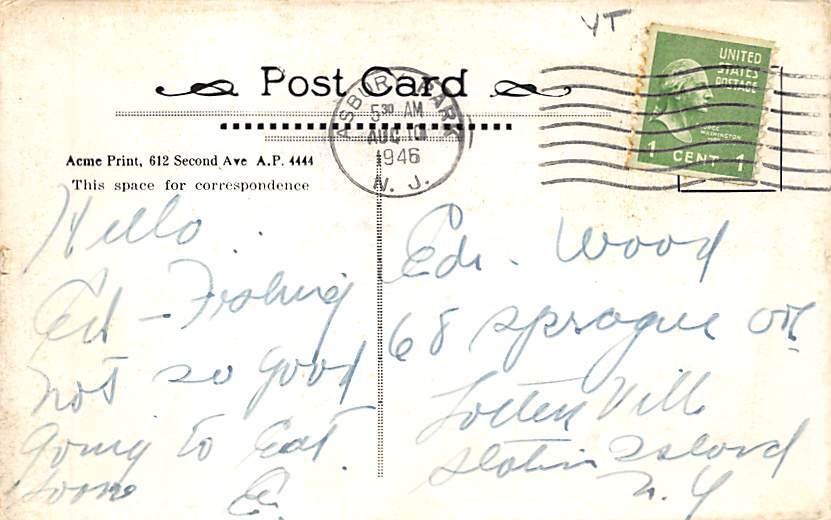 YT
UNITED
STATES
POSTAGE
GEORGE
WASHINGTON
1 CENT 1
Post Card
ASBURY PARK
5 30 AM
AUG 10
1946
N. J.
Acme Print, 612 Second Ave A.P. 4444
This space for correspondence
Hello
Ed - Fishing
not so good
going to Eat
soon
E.
Edi. Wood
68 Sprague
Totten Vill
Staten Island
N. Y